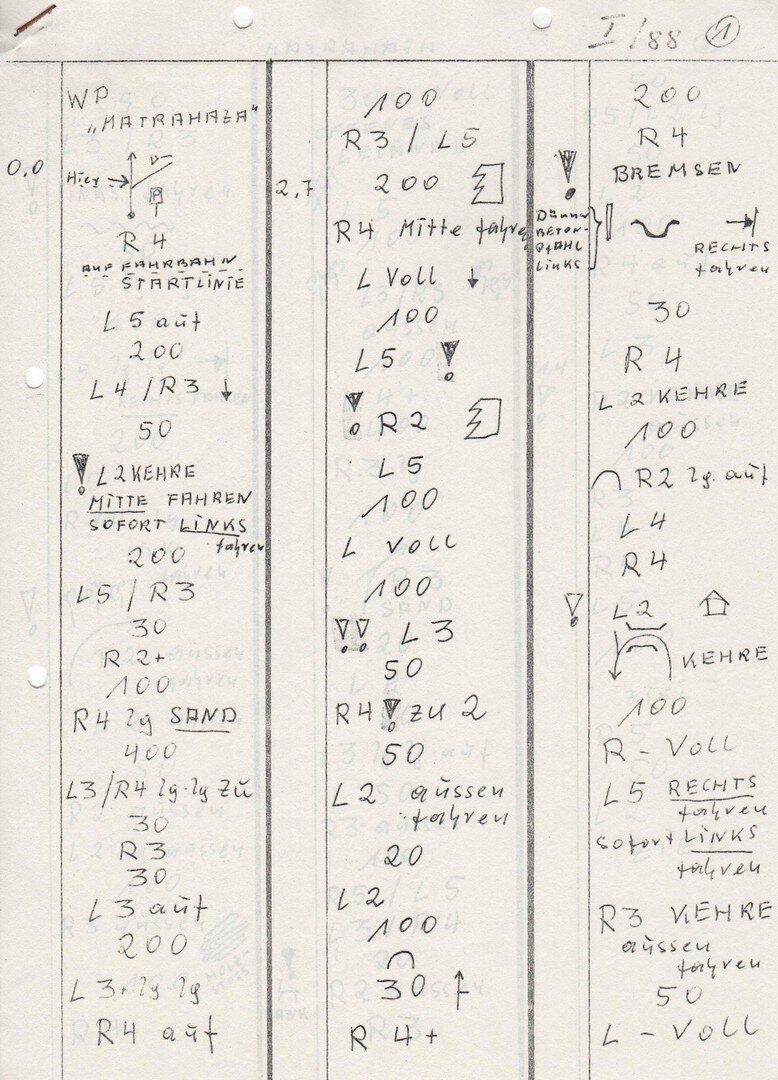 I/88 1
WP
„MATRAHAZA"
0,0
Hier
R 4
AUF FAHRBAHN
STARTLINIE
L 5 auf
200
L 4 / R 3
50
! L 2 KEHRE
MITTE FAHREN
SOFORT LINKS
fahren
200
L5 / R3
30
R2+
100
R4 lg SAND
400
L3/R4 lg-lg zu
30
R3
30
L 3 auf
200
L 3+ lg lg
R4 auf
100
R 3 / L5
2,7
200
R4 Mitte fahren
L Voll
100
L5 !
! R2
L5
100
L Voll
100
!! L 3
50
R4 ! zu 2
50
L 2 aussen
fahren
20
L2
100
30
R 4+
200
R 4
! BREMSEN
DÜNNE
BETON-
STAHL
LINKS
RECHTS
fahren
30
R 4
L 2 KEHRE
100
R2 lg. auf
L4
R4
! L2
KEHRE
100
R - VOLL
L5 RECHTS
fahren
sofort LINKS
fahren
R3 KEHRE
aussen
fahren
50
L - VOLL